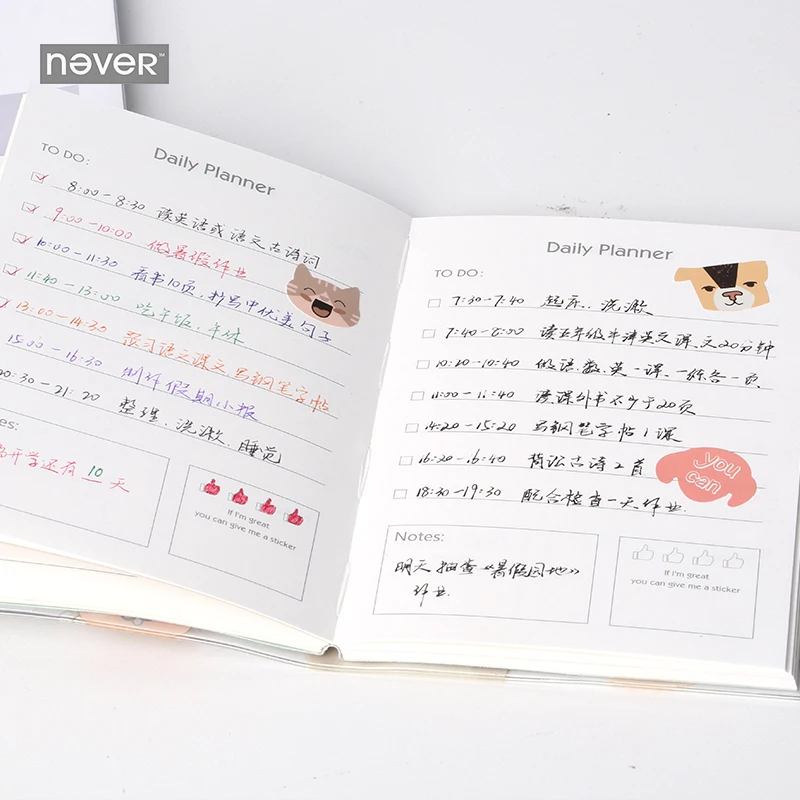 never™
Daily Planner
TO DO:
8:00-8:30 读英语或语文古诗词
9:00-10:00 做暑假作业
10:00-11:30 看书10页,抄写中优美句子
11:40-13:00 吃午饭、午休
13:00-14:30 预习语文课文,写钢笔字帖
15:00-16:30 制作假期小报
20:30-21:20 整理、洗漱、睡觉
es:
离开学还有 10 天
If I'm great
you can give me a sticker
Daily Planner
TO DO:
7:30-7:40 起床、洗漱
7:40-8:00 读五年级牛津英文课文20分钟
10:20-10:40 做语、数、英一课一练各一页
11:00-11:40 读课外书不少于20页
14:20-15:20 写钢笔字帖1课
16:20-16:40 背讼古诗2首
18:30-19:30 配合检查一天作业
you
can
Notes:
明天抽查《暑假园地》
作业.
If I'm great
you can give me a sticker